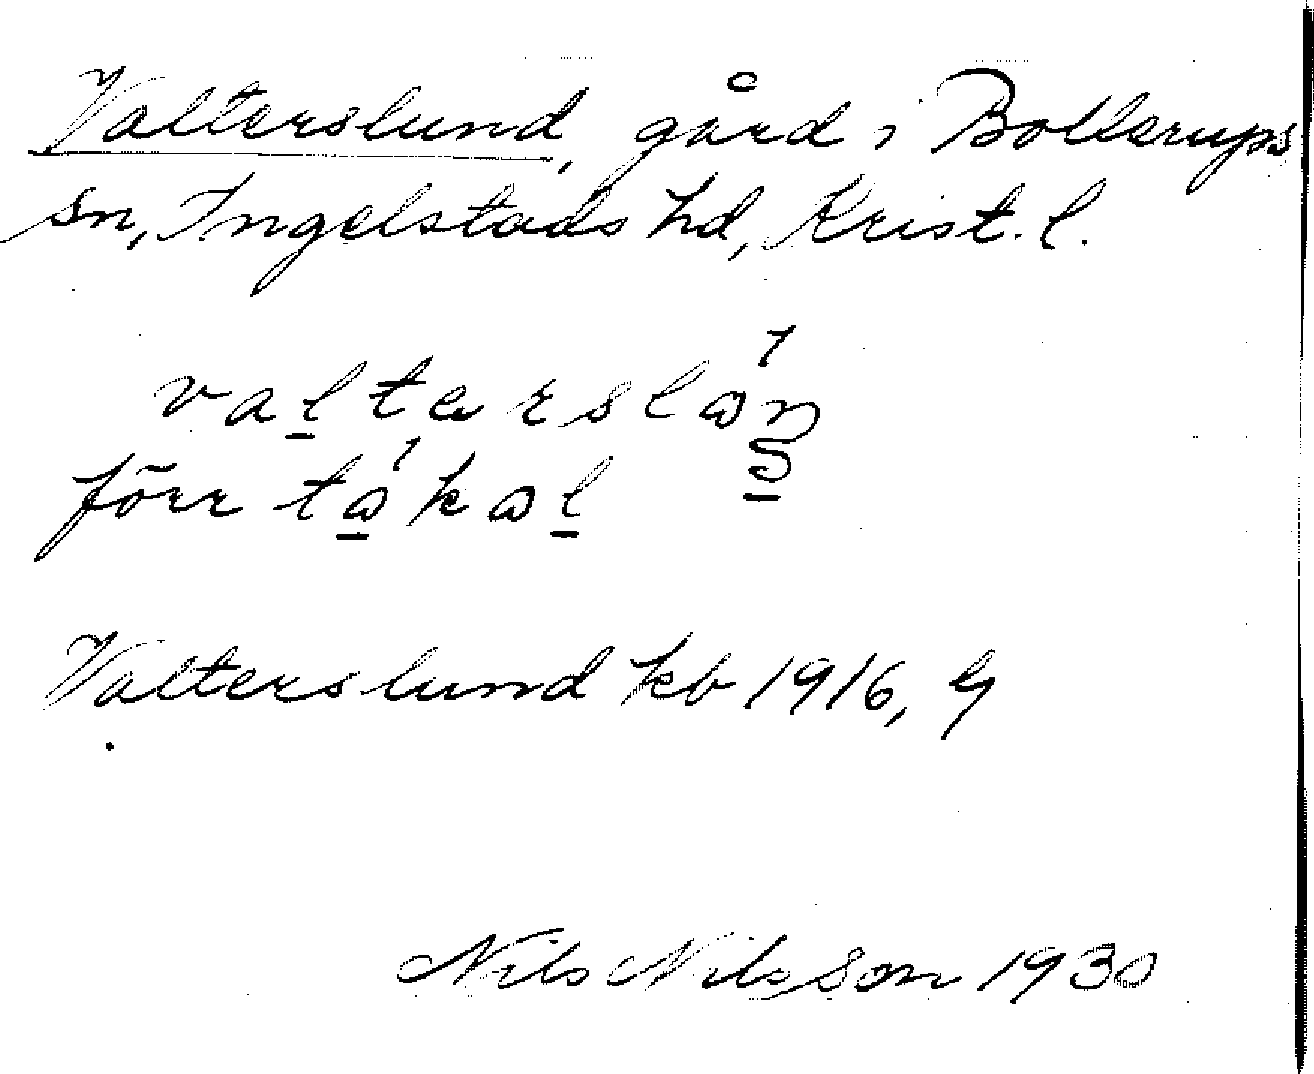 Valterslund, gård i Bollerups
sn, Ingelstads hd, Krist. l.
valtersl
förr
Valterslund kb 1916, G
Nils Nilsson 1930